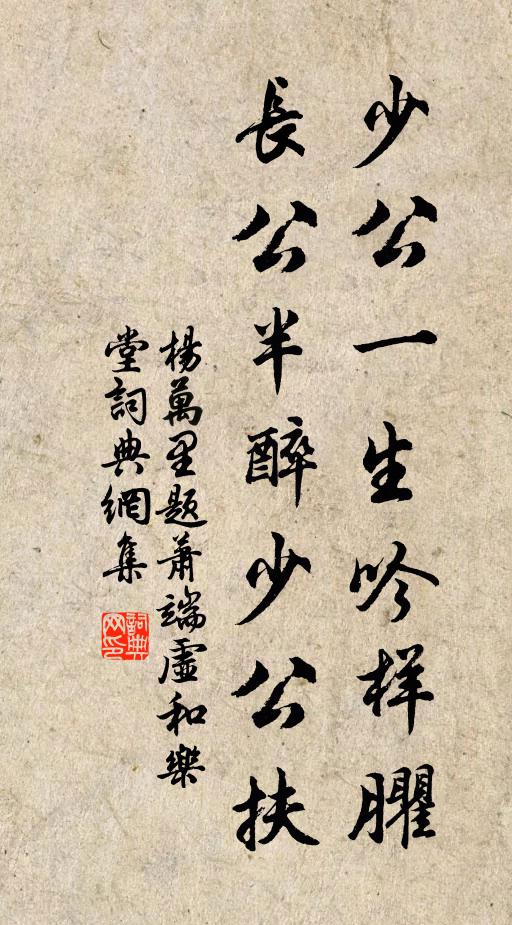 少公一生吟样臞
長公半醉少公扶
楊萬里题蕭端虛和樂
堂詞典網集
詞典网印